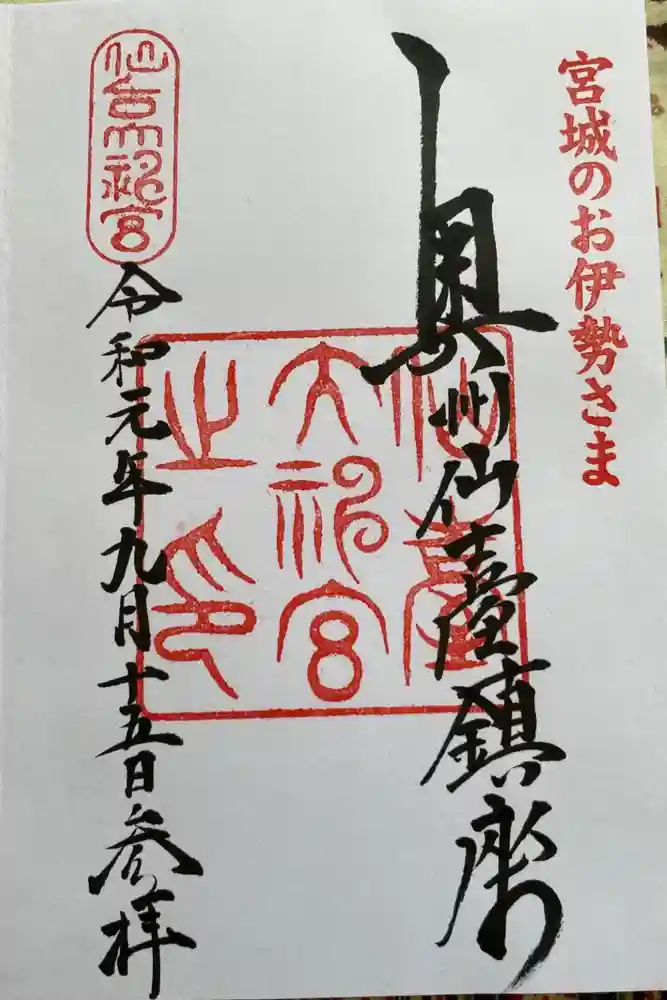 宮城のお伊勢さま
奥州仙臺鎮座
仙臺
大神宮
之印
仙台大神宮
令和元年九月十五日参拝